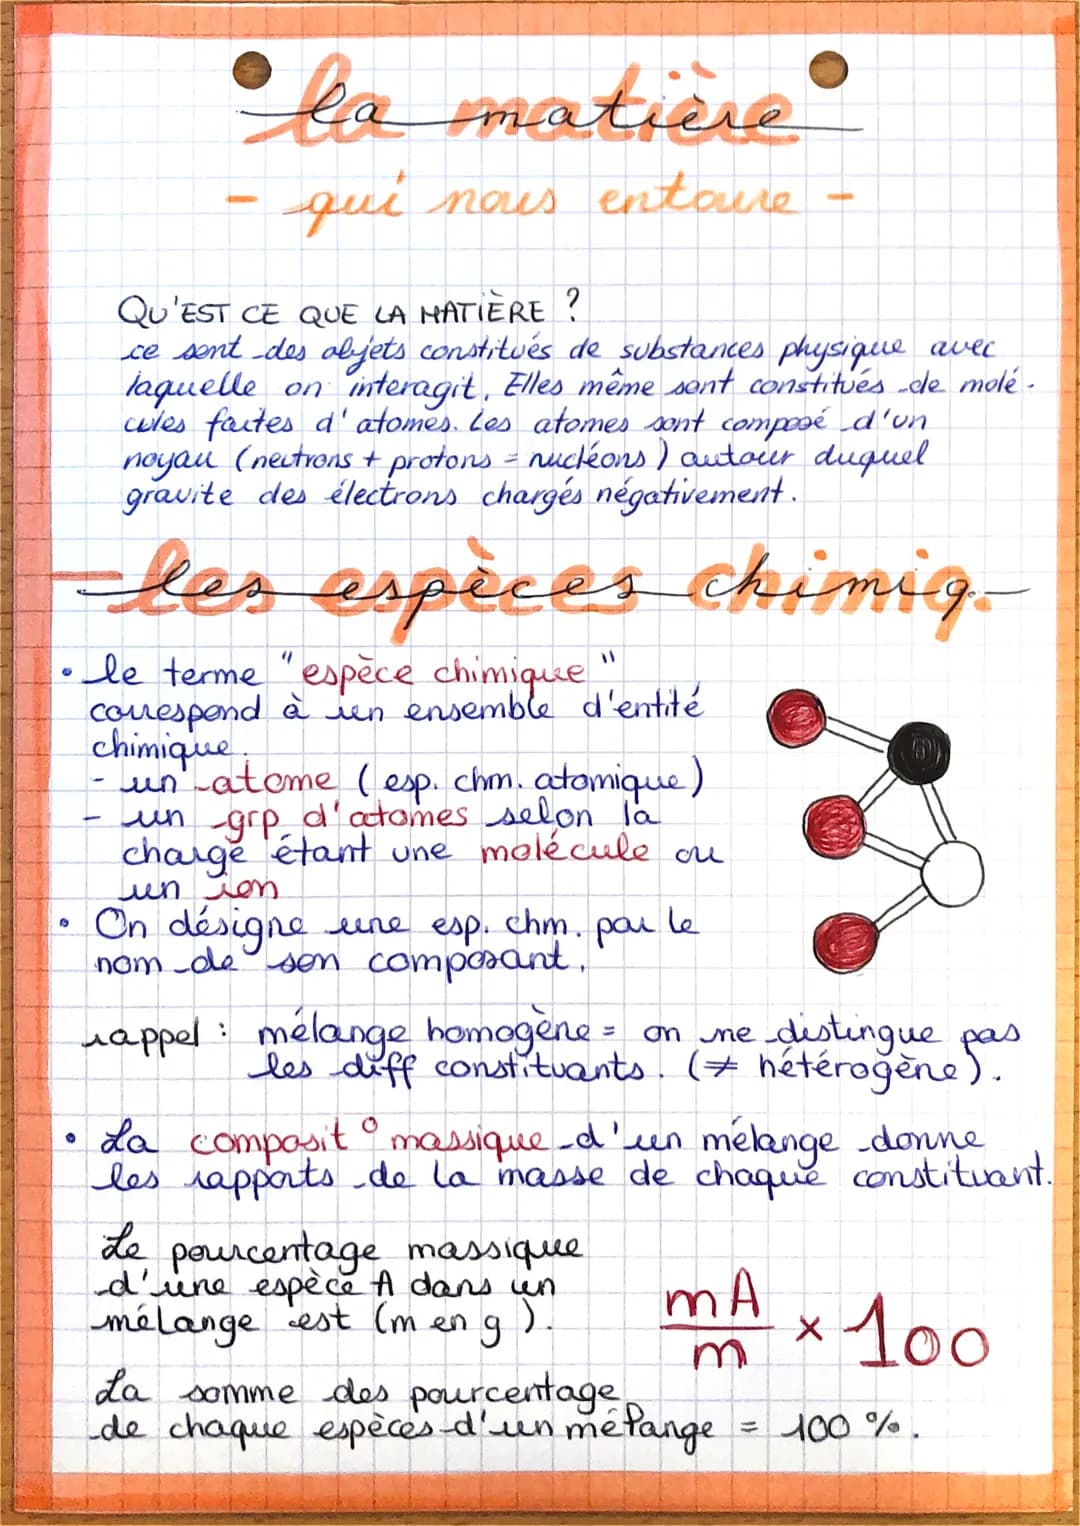 la matière
- qui nous entoure -
QU'EST CE QUE LA MATIÈRE ?
ce sont des objets constitués de substances physique avec
laquelle on interagit. Elles même sont constitués de molé-
cules faites d'atomes. Les atomes sont composé d'un
noyau (neutrons + protons = nucléons) autour duquel
gravite des électrons chargés négativement.
les espèces chimiq.
• le terme "espèce chimique"
correspond à un ensemble d'entité
chimique.
- un atome (esp. chm. atomique)
- un grp d'atomes selon la
charge étant une molécule ou
un ion
• On désigne une esp. chm. par le
nom de son composant.
rappel : mélange homogène = on ne distingue pas
les diff constituants. (≠ hétérogène).
• La composit° massique d'un mélange donne
les rapports de la masse de chaque constituant.
Le pourcentage massique
d'une espèce A dans un
mélange est (m en g).
mA
m
× 100
La somme des pourcentage
de chaque espèces d'un mélange = 100 %.